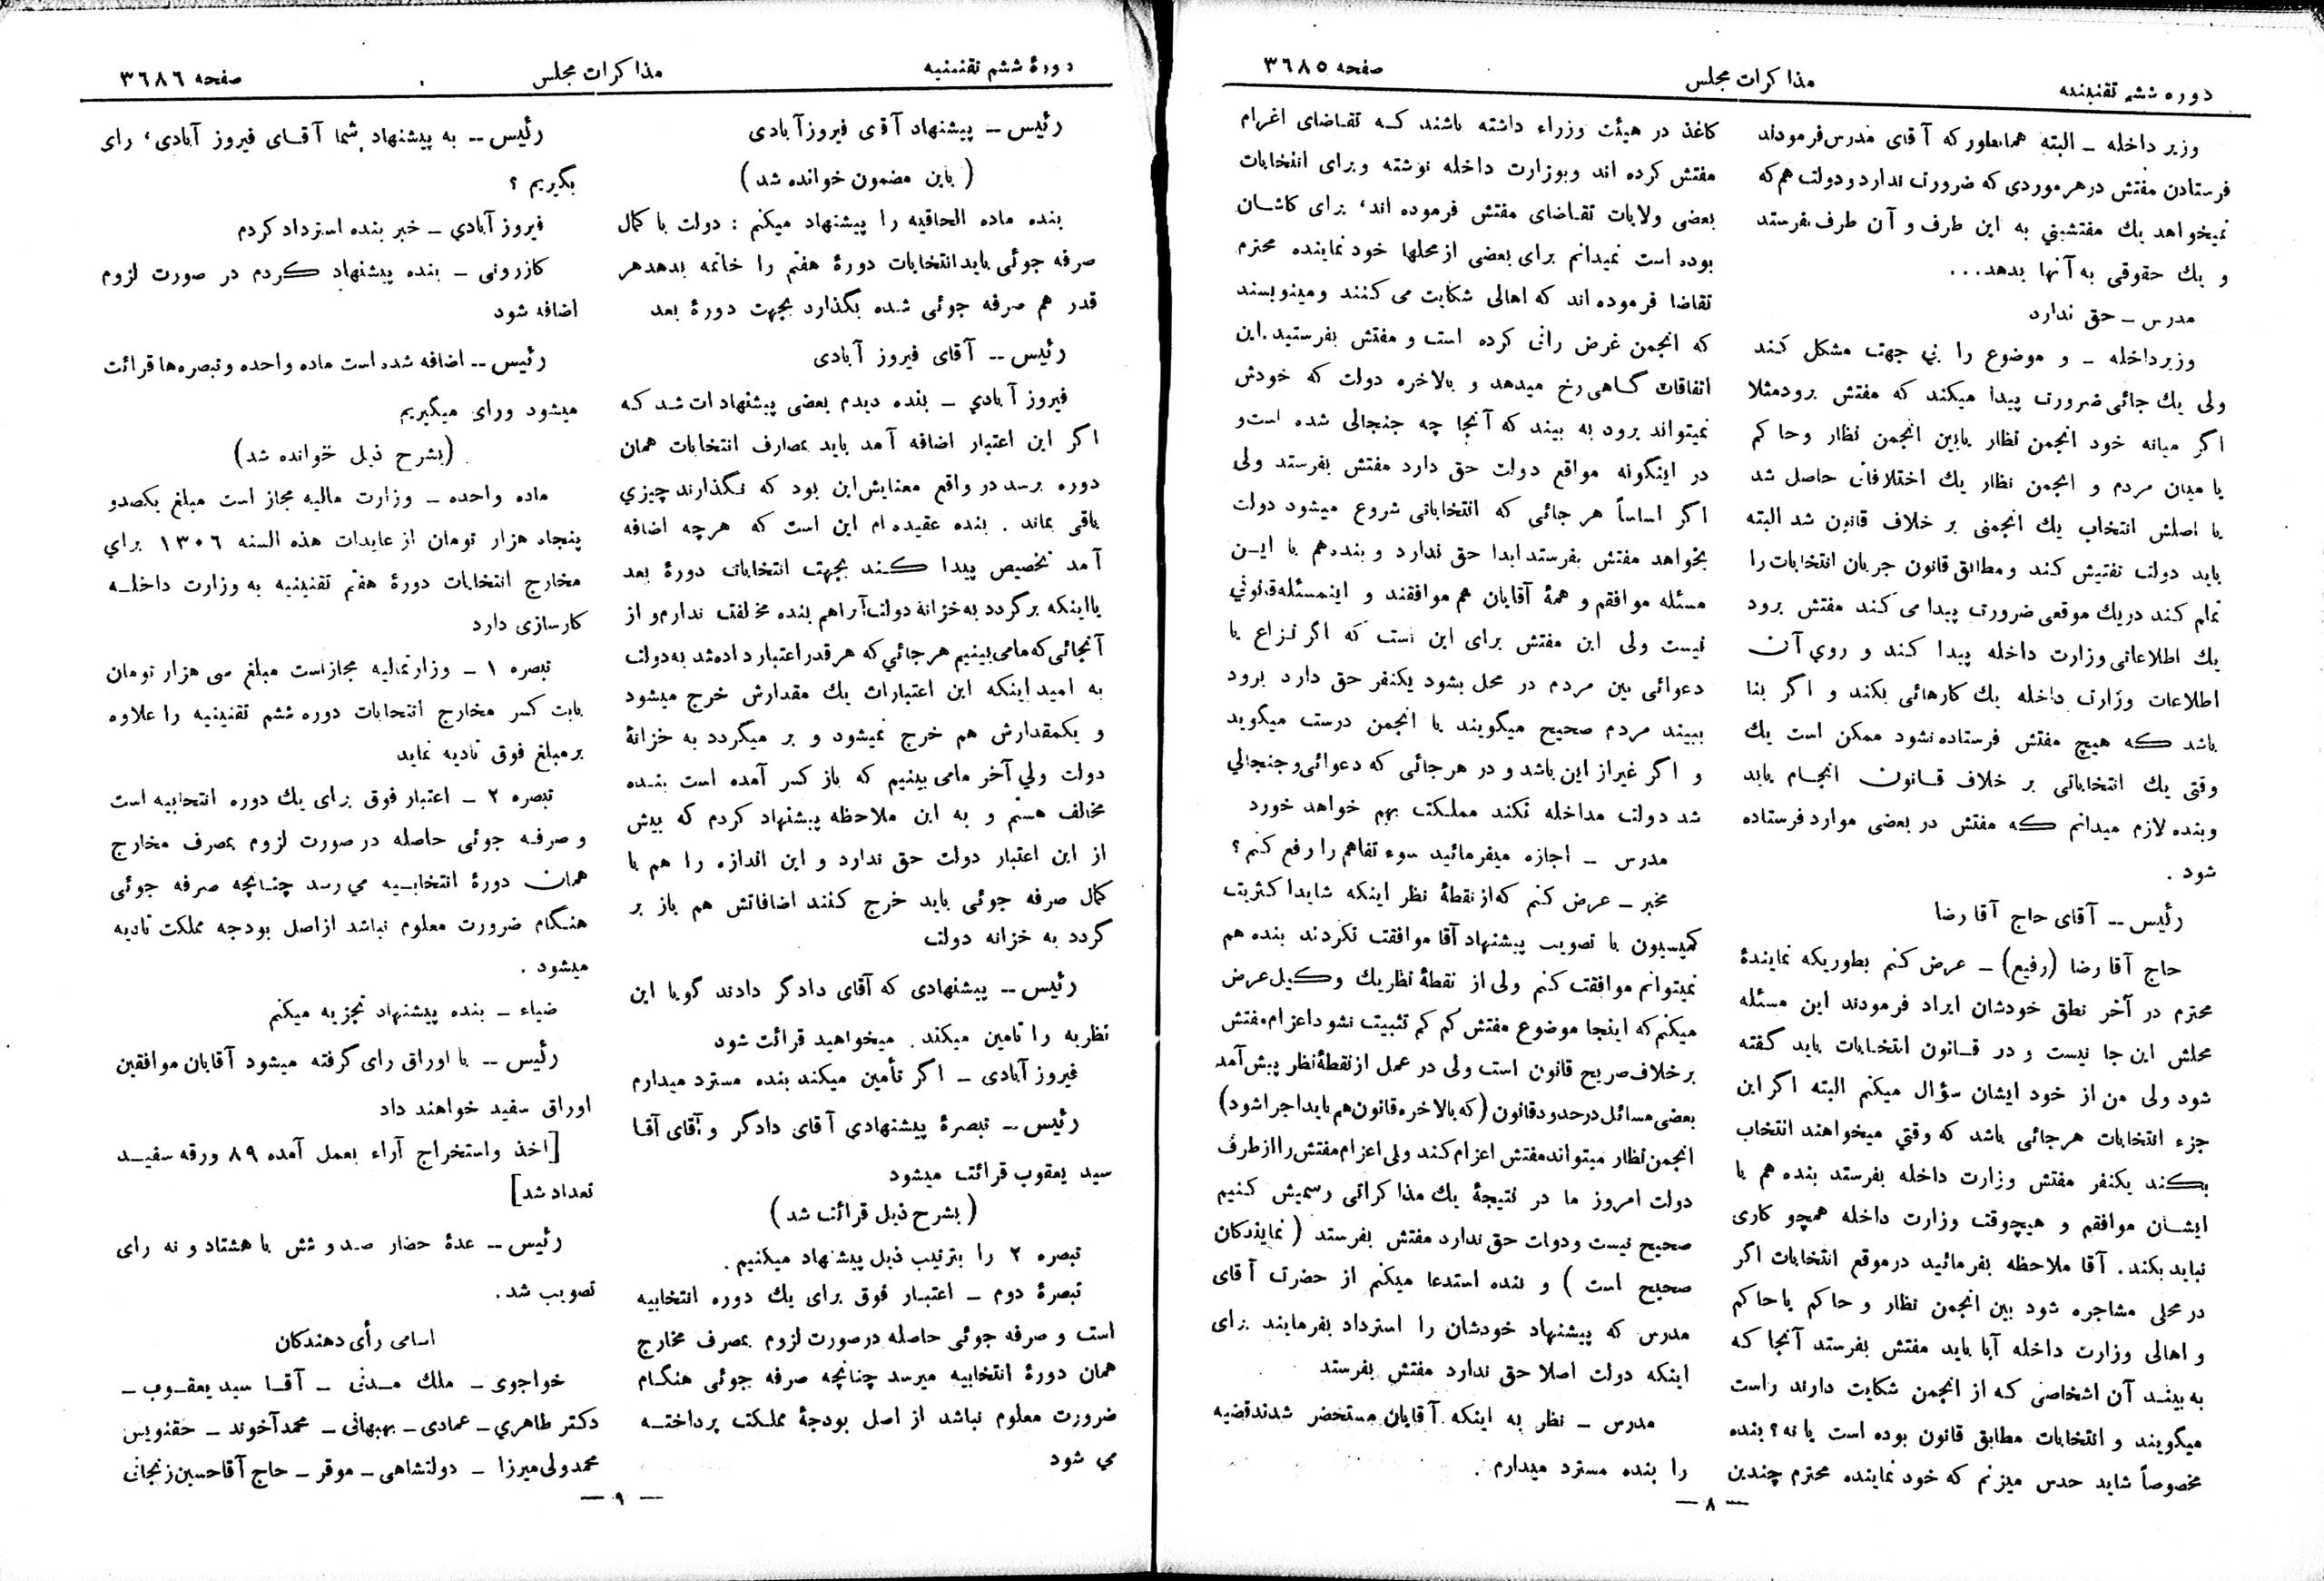 دوره ششم تقنینیه
مذاکرات مجلس
صفحه ۳٦۸۵
وزیر داخله ــ البته همانطور که آقای مدرس فرمودند
فرستادن مفتش در هر موردی که ضرورت ندارد و دولت هم که
نمیخواهد یك مفتشینی به این طرف و آن طرف بفرستد
و یك حقوقی به آنها بدهد...
مدرس ــ حق ندارد
وزیر داخله ــ و موضوع را بی جهت مشکل کند
ولی یك جائی ضرورت پیدا میکند که مفتش برود مثلا
اگر میانه خود انجمن نظار یا بین انجمن نظار و حاکم
یا میان مردم و انجمن نظار یك اختلافاتی حاصل شد
یا اصلش انتخاب یك انجمنی بر خلاف قانون شد البته
باید دولت تفتیش کند و مطابق قانون جریان انتخابات را
تمام کند در یك موقعی ضرورت پیدا می کند مفتش برود
یك اطلاعاتی وزارت داخله پیدا کند و روي آن
اطلاعات وزارت داخله یك کارهائی بکند و اگر بنا
باشد که هیچ مفتش فرستاده نشود ممکن است یك
وقتی یك انتخاباتی بر خلاف قانون انجام یابد
و بنده لازم میدانم که مفتش در بعضی موارد فرستاده
شود .
رئیس ــ آقای حاج آقا رضا
حاج آقا رضا (رفیع) ــ عرض کنم بطوریکه نمایندۀ
محترم در آخر نطق خودشان ایراد فرمودند این مسئله
محلش این جا نیست و در قانون انتخابات باید گفته
شود ولی من از خود ایشان سؤال میکنم البته اگر این
جزء انتخابات هر جائی باشد که وقتي میخواهند انتخاب
بکنند یکنفر مفتش وزارت داخله بفرستد بنده هم با
ایشان موافقم و هیچوقت وزارت داخله همچو کاری
نباید بکند . آقا ملاحظه بفرمائید در موقع انتخابات اگر
در محلی مشاجره شود بین انجمن نظار و حاکم یا حاکم
و اهالی وزارت داخله آیا باید مفتش بفرستد آنجا که
به بیند آن اشخاصی که از انجمن شکایت دارند راست
میگویند و انتخابات مطابق قانون بوده است یا نه ؟ بنده
مخصوصاً شاید حدس میزنم که خود نماینده محترم چندین
کاغذ در هیئت وزراء داشته باشند که تقاضای اغرام
مفتش کرده اند و بوزارت داخله نوشته و برای انتخابات
بعضی ولایات تقاضای مفتش فرموده اند، برای کاشان
بوده است نمیدانم برای بعضی از محلها خود نماینده محترم
تقاضا فرموده اند که اهالی شکایت می کنند و مینویسند
که انجمن غرض رانی کرده است و مفتش بفرستید . این
اتفاقات گاهی رخ میدهد و بالاخره دولت که خودش
نمیتواند برود به بیند که آنجا چه جنجالی شده است و
در اینگونه مواقع دولت حق دارد مفتش بفرستد ولی
اگر اساساً هر جائی که انتخاباتی شروع میشود دولت
بخواهد مفتش بفرستد ابدا حق ندارد و بنده هم با این
مسئله موافقم و همۀ آقایان هم موافقند و اینمسئله قانوني
نیست ولی این مفتش برای این است که اگر نزاع یا
دعوائی بین مردم در محل بشود یکنفر حق دارد برود
ببیند مردم صحیح میگویند یا انجمن درست میگوید
و اگر غیر از این باشد و در هر جائی که دعوائی و جنجالي
شد دولت مداخله نکند مملکت بهم خواهد خورد
مدرس ــ اجازه میفرمائید سوء تفاهم را رفع کنم ؟
مخبر ــ عرض کنم که از نقطۀ نظر اینکه شاید اکثریت
کمیسیون با تصویب پیشنهاد آقا موافقت نکردند بنده هم
نمیتوانم موافقت کنم ولی از نقطۀ نظر یك وکیل عرض
میکنم که اینجا موضوع مفتش کم کم تثبیت نشود اعزام مفتش
بر خلاف صریح قانون است ولی در عمل از نقطۀ نظر پیش آمد
بعضی مسائل در حدود قانون (که بالاخره قانون هم باید اجرا شود)
انجمن نظار میتواند مفتش اعزام کند ولی اعزام مفتش را از طرف
دولت امروز ما در نتیجۀ یك مذاکراتی رسمیش کنیم
صحیح نیست و دولت حق ندارد مفتش بفرستد ( نمایندگان
صحیح است ) و بنده استدعا میکنم از حضرت آقای
مدرس که پیشنهاد خودشان را استرداد بفرمایند برای
اینکه دولت اصلا حق ندارد مفتش بفرستد
مدرس ــ نظر به اینکه آقایان مستحضر شدند قضیه
را بنده مسترد میدارم .
— ۸ —
دورۀ ششم تقنینیه
مذاکرات مجلس
صفحه ۳٦۸٦
رئیس ــ پیشنهاد آقای فیروزآبادی
( باین مضمون خوانده شد )
بنده ماده الحاقیه را پیشنهاد میکنم : دولت با کمال
صرفه جوئی باید انتخابات دورۀ هفتم را خاتمه بدهد هر
قدر هم صرفه جوئی شده بگذارد بجهت دورۀ بعد
رئیس ــ آقای فیروز آبادی
فیروز آبادي ــ بنده دیدم بعضی پیشنهادات شد که
اگر این اعتبار اضافه آمد باید بمصارف انتخابات همان
دوره برسد در واقع معنایش این بود که نگذارند چیزي
باقی بماند . بنده عقیده ام این است که هر چه اضافه
آمد تخصیص پیدا کند بجهت انتخابات دورۀ بعد
یا اینکه برگردد به خزانۀ دولت آنراهم بنده مخالفت ندارم و از
آنجائی که ما می بینیم هر جائي که هر قدر اعتبار داده شد به دولت
به امید اینکه این اعتبارات یك مقدارش خرج میشود
و یکمقدارش هم خرج نمیشود و بر میگردد به خزانۀ
دولت ولي آخر ما می بینیم که باز کسر آمده است بنده
مخالف هستم و به این ملاحظه پیشنهاد کردم که بیش
از این اعتبار دولت حق ندارد و این اندازه را هم با
کمال صرفه جوئی باید خرج کنند اضافاتش هم باز بر
گردد به خزانه دولت
رئیس ــ پیشنهادی که آقای دادگر دادند گویا این
نظریه را تامین میکند . میخواهید قرائت شود
فیروز آبادی ــ اگر تأمین میکند بنده مسترد میدارم
رئیس ــ تبصرۀ پیشنهادي آقای دادگر و آقای آقا
سید یعقوب قرائت میشود
( بشرح ذیل قرائت شد )
تبصره ۲ را بترتیب ذیل پیشنهاد میکنیم .
تبصرۀ دوم ــ اعتبار فوق برای یك دوره انتخابیه
است و صرفه جوئی حاصله در صورت لزوم بمصرف مخارج
همان دورۀ انتخابیه میرسد چنانچه صرفه جوئی هنگام
ضرورت معلوم نباشد از اصل بودجۀ مملکت پرداخته
می شود
رئیس ــ به پیشنهاد شما آقای فیروز آبادی، رای
بگیریم ؟
فیروز آبادي ــ خیر بنده استرداد کردم
کازرونی ــ بنده پیشنهاد کردم در صورت لزوم
اضافه شود
رئیس ــ اضافه شده است ماده واحده و تبصره ها قرائت
میشود ورای میگیریم
(بشرح ذیل خوانده شد)
ماده واحده ــ وزارت مالیه مجاز است مبلغ یکصدو
پنجاه هزار تومان از عایدات هذه السنه ۱۳۰٦ براي
مخارج انتخابات دورۀ هفتم تقنینیه به وزارت داخله
کارسازی دارد
تبصره ۱ ــ وزارتمالیه مجاز است مبلغ سی هزار تومان
بابت کسر مخارج انتخابات دوره ششم تقنینیه را علاوه
بر مبلغ فوق تادیه نماید
تبصره ۲ ــ اعتبار فوق برای یك دوره انتخابیه است
و صرفه جوئی حاصله در صورت لزوم بمصرف مخارج
همان دورۀ انتخابیه می رسد چنانچه صرفه جوئی
هنگام ضرورت معلوم نباشد از اصل بودجه مملکت تادیه
میشود .
ضیاء ــ بنده پیشنهاد تجزیه میکنم
رئیس ــ با اوراق رای گرفته میشود آقایان موافقین
اوراق سفید خواهند داد
[اخذ و استخراج آراء بعمل آمده ۸۹ ورقه سفید
تعداد شد]
رئیس ــ عدۀ حضار صد و شش با هشتاد و نه رای
تصویب شد .
اسامی رأی دهندگان
خواجوی ــ ملك مدنی ــ آقا سید یعقوب ــ
دکتر طاهري ــ عمادی ــ بهبهانی ــ محمد آخوند ــ حقنویس
محمد ولی میرزا ــ دولتشاهی ــ موقر ــ حاج آقا حسین زنجانی
— ۹ —